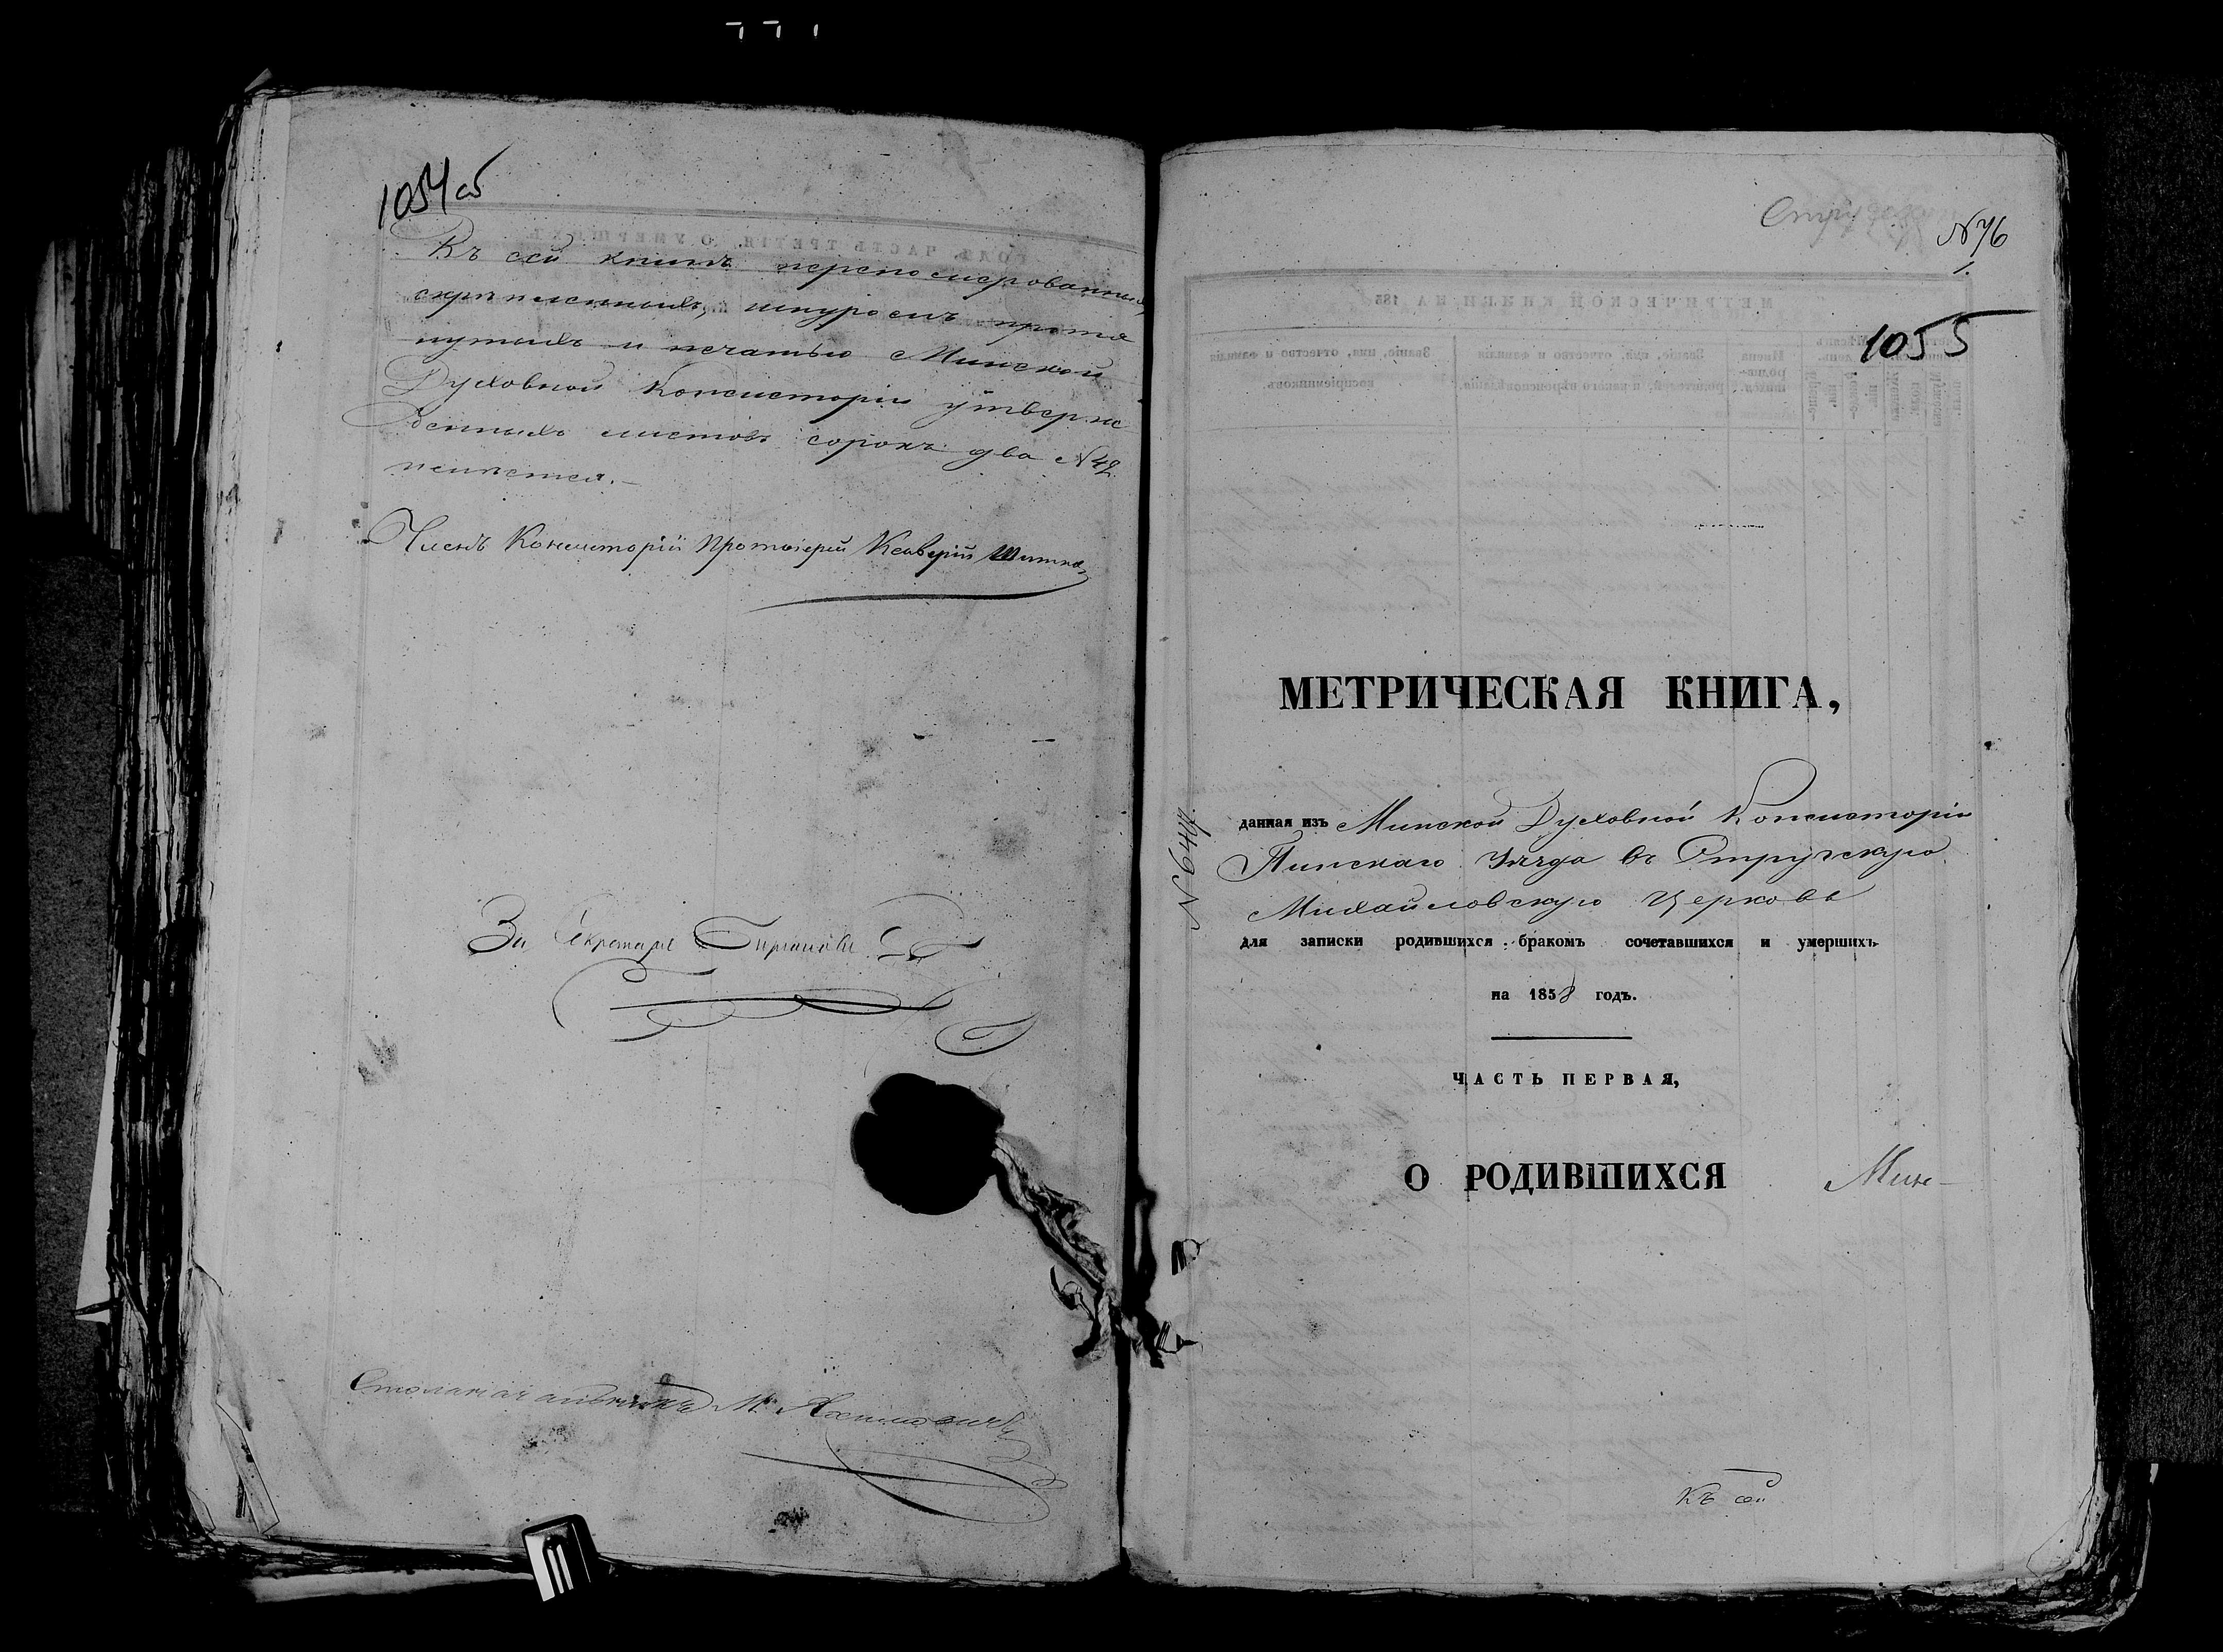 1054 об
Къ сей книгѣ перенумерованныхъ,
скрѣпленныхъ, шнуромъ протя
нутыхъ и печатью Минской
Духовной Консисторіи утверж
денныхъ листовъ сорокъ два №42
имѣется.
Членъ Консисторіи Протоіерей Ксаверій
За Секретаря
Столоначальникъ М.
№76
1055
МЕТРИЧЕСКАЯ КНИГА,
№ 6447
данная изъ Минской Духовной Консисторіи
Пинскаго Уѣзда въ Стружскую
Михайловскую Церковь
для записки родившихся, бракомъ сочетавшихся и умершихъ
на 1858 годъ.
ЧАСТЬ ПЕРВАЯ,
О РОДИВШИХСЯ
Мин-
Къ сей